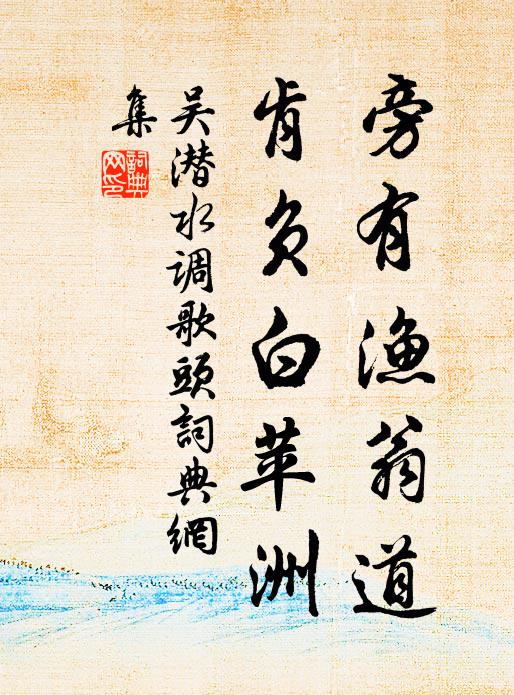 旁有渔翁道
肯负白苹洲
吴潜水调歌头詞典網
集
詞典
网印